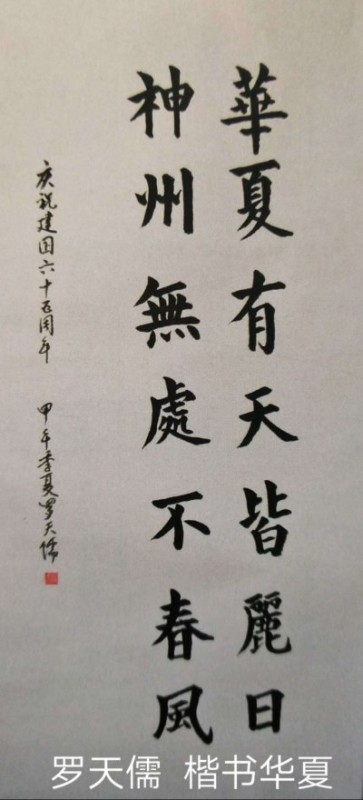 華夏有天皆麗日
神州無處不春風
庆祝建国六十五周年 甲午季夏罗天儒
罗天儒 楷书华夏